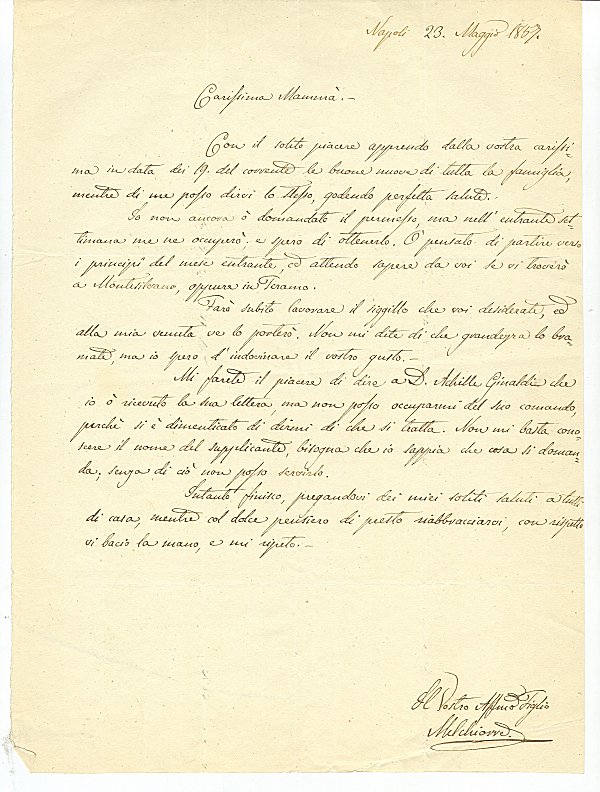 Napoli 23. Maggio 1857.
Carissima Mammà. –
Con il solito piacere apprendo dalla vostra carissi-
ma in data dei 19. del corrente le buone nuove di tutta la famiglia,
mentre di me posso dirvi lo stesso, godendo perfetta salute.
Io non ancora ò domandato il permesso, ma nell' entrante set-
timana me ne occuperò, e spero di ottenerlo. Ò pensato di partire verso
i principj del mese entrante, ed attendo sapere da voi se vi troverò
a Montesilvano, oppure in Teramo.
Farò subito lavorare il siggillo che voi desiderate, ed
alla mia venuta ve lo porterò. Non mi dite di che grandezza lo bra-
mate, ma io spero d' indovinare il vostro gusto. –
Mi farete il piacere di dire a D. Achille Ginaldi che
io ò ricevuto la sua lettera, ma non posso occuparmi del suo comando,
perchè si è dimenticato di dirmi di che si tratta. Non mi basta cono-
scere il nome del supplicante, bisogna che io sappia che cosa si doman-
da, senza di ciò non posso servirlo.
Intanto finisco, pregandovi dei miei soliti saluti a tutti
di casa, mentre col dolce pensiero di presto riabbracciarvi, con rispetto
vi bacio la mano, e mi ripeto. –
Il Vostro Affmo Figlio
Melchiorre.